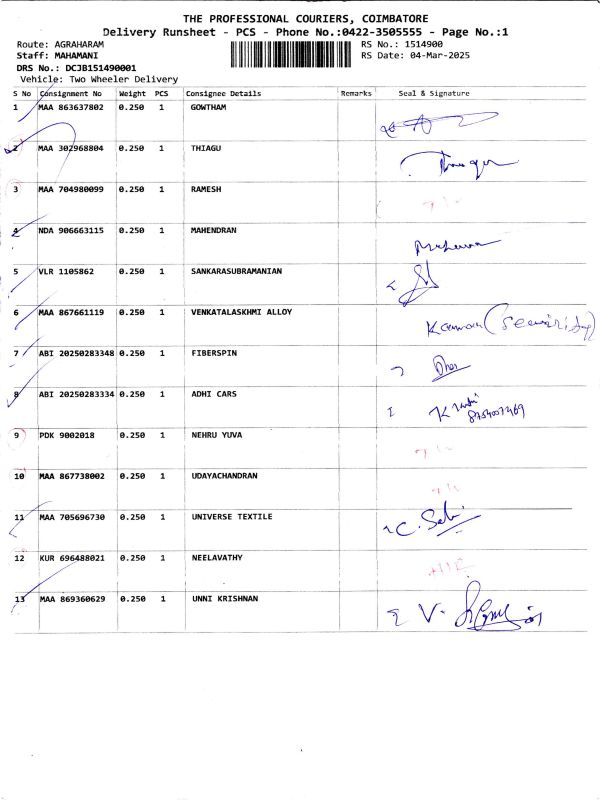 THE PROFESSIONAL COURIERS, COIMBATORE
Delivery Runsheet - PCS - Phone No.:0422-3505555 - Page No.:1
Route: AGRAHARAM RS No.: 1514900
Staff: MAHAMANI RS Date: 04-Mar-2025
DRS No.: DCJB151490001
Vehicle: Two Wheeler Delivery
S No Consignment No Weight PCS Consignee Details Remarks Seal & Signature
1 MAA 863637802 0.250 1 GOWTHAM
2 MAA 302968804 0.250 1 THIAGU
3 MAA 704980099 0.250 1 RAMESH
4 NDA 906663115 0.250 1 MAHENDRAN
5 VLR 1105862 0.250 1 SANKARASUBRAMANIAN
6 MAA 867661119 0.250 1 VENKATALASKHMI ALLOY
7 ABI 20250283348 0.250 1 FIBERSPIN
8 ABI 20250283334 0.250 1 ADHI CARS
9 PDK 9002018 0.250 1 NEHRU YUVA
10 MAA 867738002 0.250 1 UDAYACHANDRAN
11 MAA 705696730 0.250 1 UNIVERSE TEXTILE
12 KUR 696488021 0.250 1 NEELAVATHY
13 MAA 869360629 0.250 1 UNNI KRISHNAN